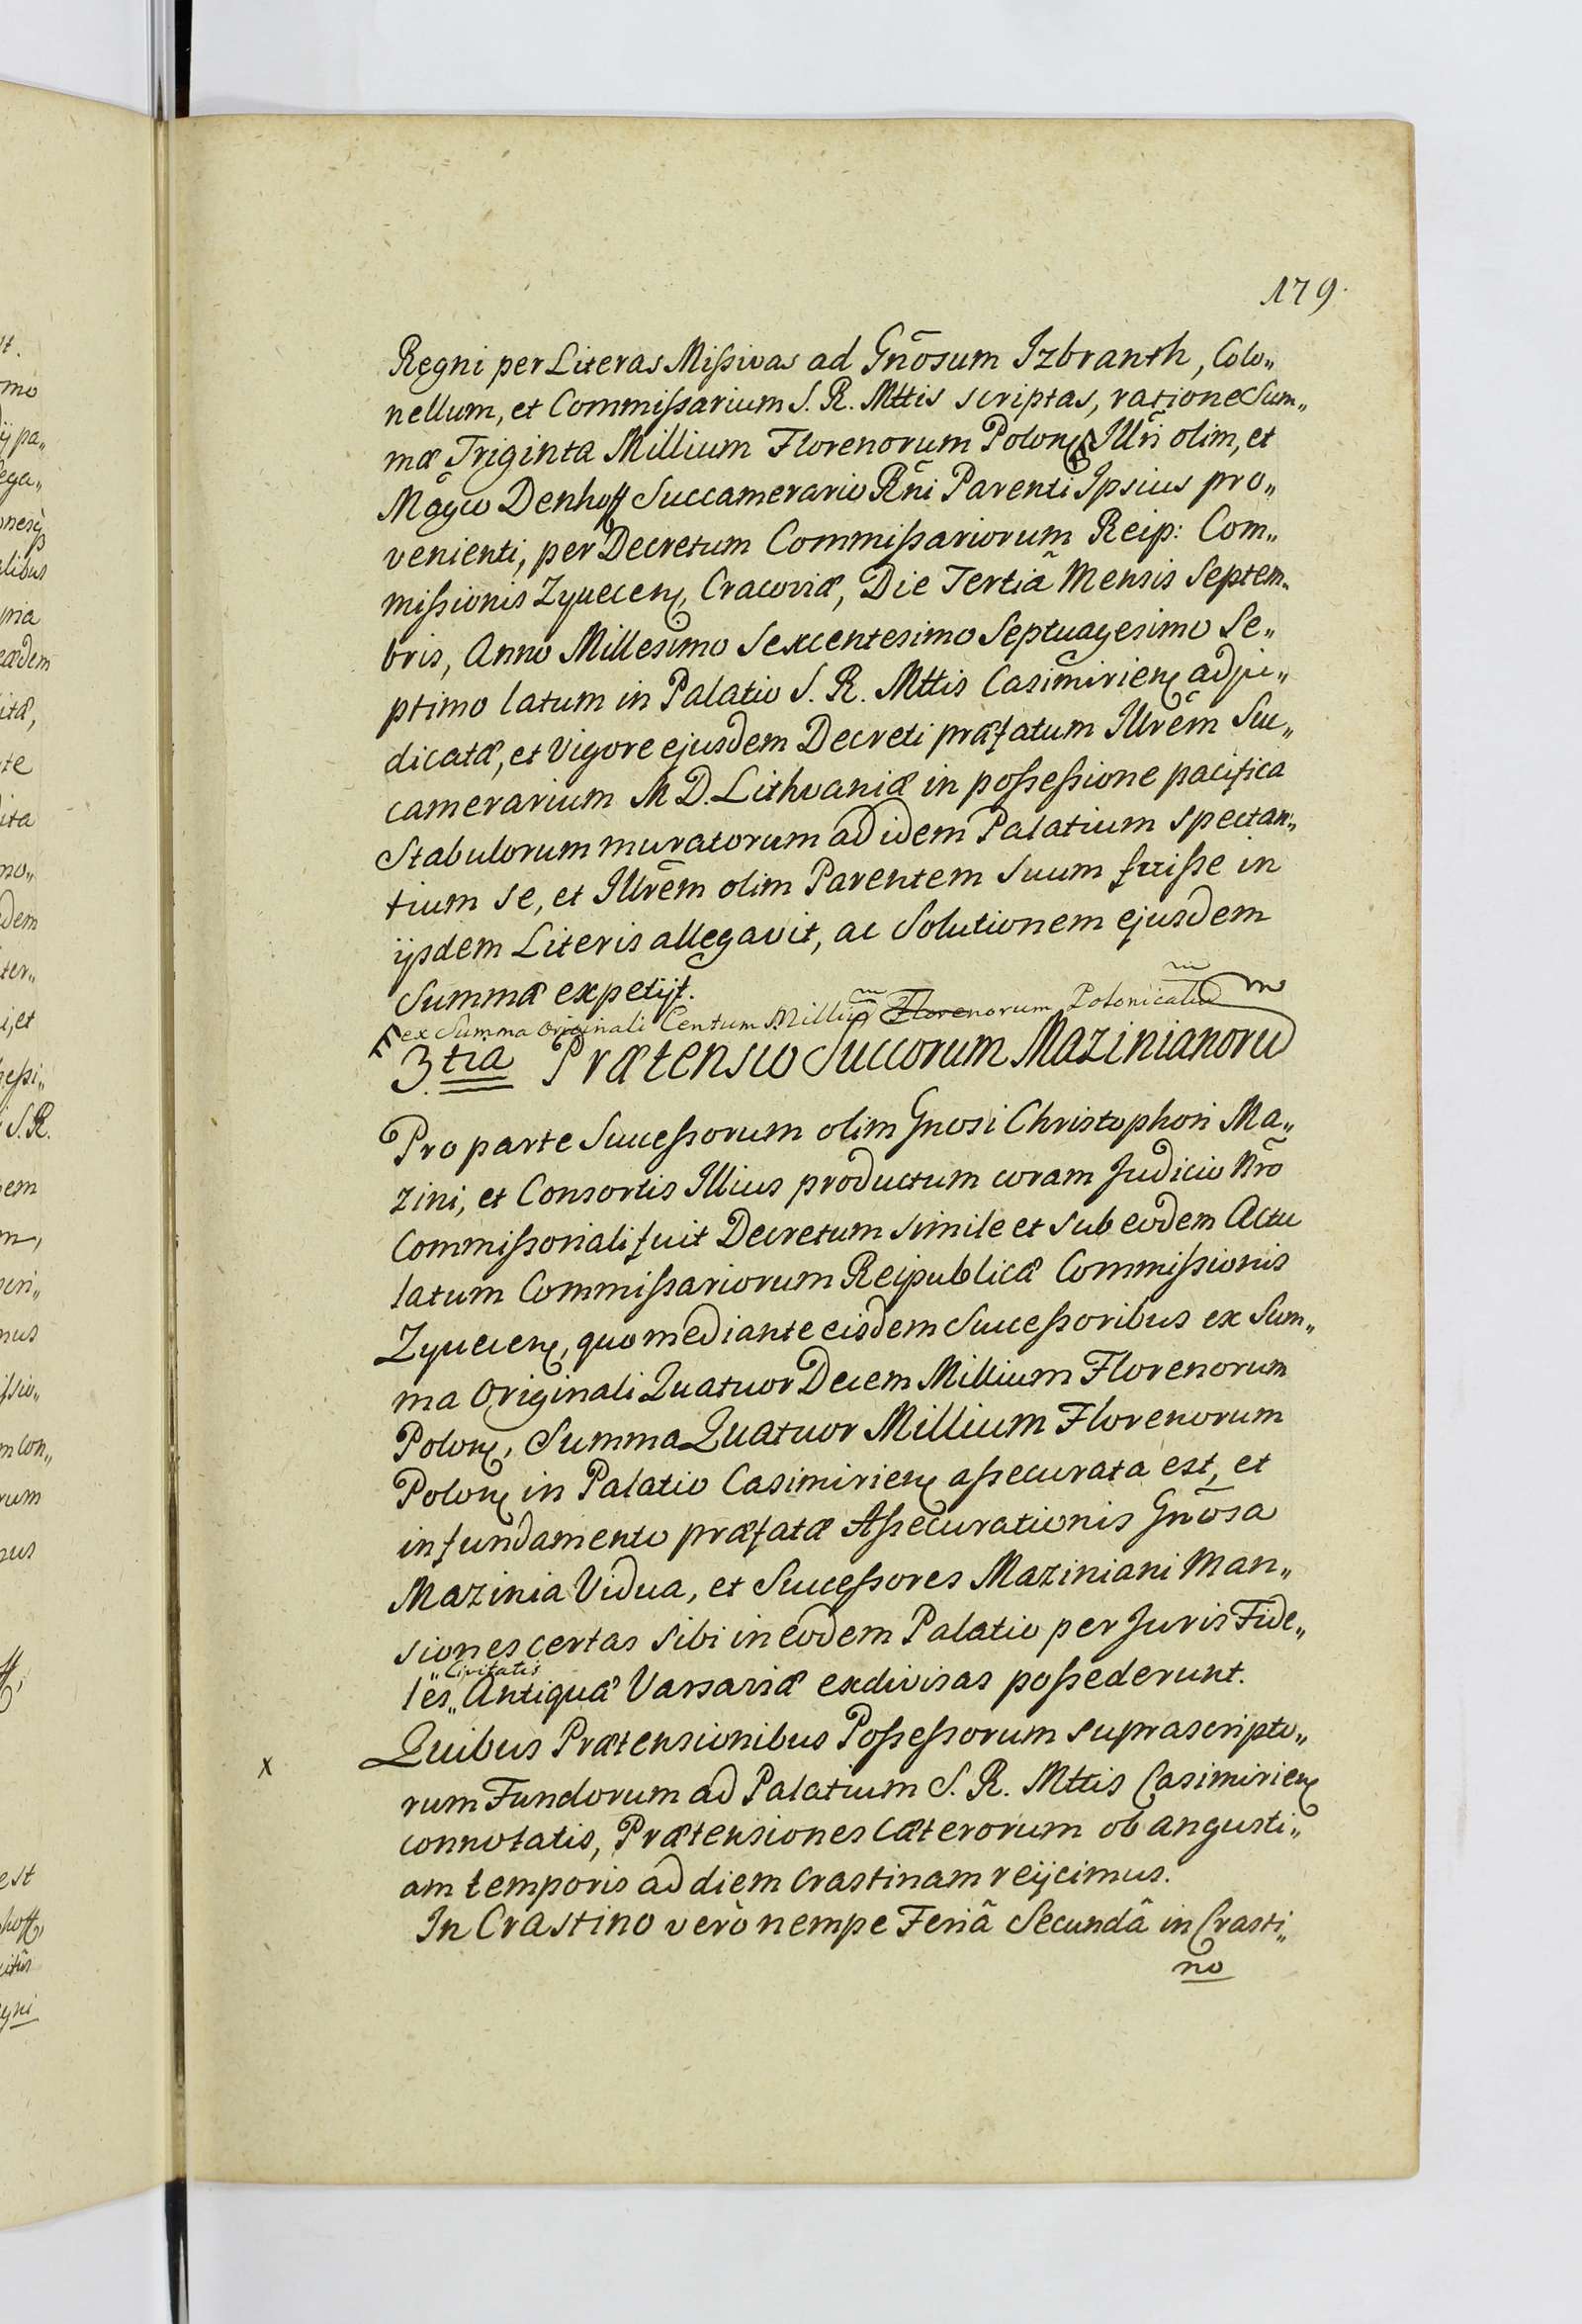 179.
Regni per Literas Missivas ad Gnōsum Izbranth, Colo„
nellum, et Commissarium S. R. Mttis scriptas, ratione Sum„
mæ Triginta Millium Florenorum Polon, Illri olim, et
Magco Denhoff Succamerario Rñi Parenti Ipsius pro„
venienti, per Decretum Commissariorum Reip: Com„
missionis Zyvecen, Cracoviæ, Die Tertiã Mensis Septem„
bris, Anno Millesimo Sexcentesimo Septuagesimo Se„
ptimo latum in Palatio S. R. Mttis Casimirien adju„
dicatæ, et vigore ejusdem Decreti præfatum Illrēm Suc„
camerarium M D. Lithvaniæ in possessione pacifica
Stabulorum muratorum ad idem Palatium spectan„
tium se, et Illrēm olim Parentem suum fuisse in
ijsdem Literis allegavit, ac Solutionem ejusdem
Summæ expetijt.
ex Summa Originali Centum Milliū Florenorum Polonicaliū
3.tia Prætensio Succorum Mazinianorū
Pro parte Successorum olim Gnosi Christophori Ma„
zini, et Consortis Illius productum coram Judicio Nrō
Commissoriali fuit Decretum simile et sub eodem Actu
latum Commissariorum Reipublicæ Commissionis
Zyvecen, quo mediante eisdem Successoribus ex Sum„
ma Originali Quatuor Decem Millium Florenorum
Polon, Summa Quatuor Millium Florenorum
Polon in Palatio Casimirien assecurata est, et
in fundamento præfatæ Assecurationis Gnōsa
Mazinia Vidua, et Successores Maziniani Man„
siones certas sibi in eodem Palatio per Juris Fide„
„Civitatis
les„ Antiquæ Varsaviæ exdivisas possederunt.
Quibus Prætensionibus Possessorum suprascripto„
x
rum Fundorum ad Palatium S. R. Mttis Casimirien
connotatis, Prætensiones Cæterorum ob angusti„
am temporis ad diem crastinam reijcimus.
In Crastino verò nempe Feriâ Secundâ in Crasti„
no